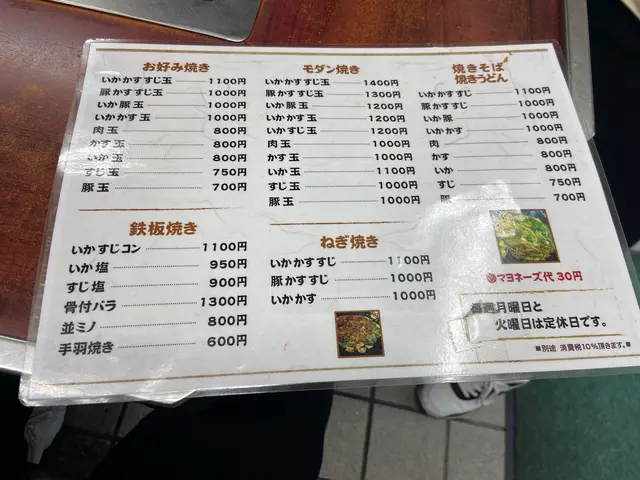 お好み焼き
いかかすすじ玉 1100円
豚かすすじ玉 1000円
いか豚玉 1000円
いかかす玉 1000円
肉玉 800円
かす玉 800円
いか玉 800円
すじ玉 750円
豚玉 700円
モダン焼き
いかかすすじ玉 1400円
豚かすすじ玉 1300円
いか豚玉 1200円
いかかす玉 1200円
いかすじ玉 1200円
肉玉 1000円
かす玉 1000円
いか玉 1100円
すじ玉 1000円
豚玉 1000円
焼きそば
焼きうどん
いかかすすじ 1100円
豚かすすじ 1000円
いか豚 1000円
いかかす 1000円
肉 800円
かす 800円
いか 800円
すじ 750円
豚 700円
鉄板焼き
いかすじコン 1100円
いか塩 950円
すじ塩 900円
骨付バラ 1300円
並ミノ 800円
手羽焼き 600円
ねぎ焼き
いかかすすじ 1100円
豚かすすじ 1000円
いかかす 1000円
マヨネーズ代 30円
毎週月曜日と
火曜日は定休日です。
■別途 消費税10%頂きます。■